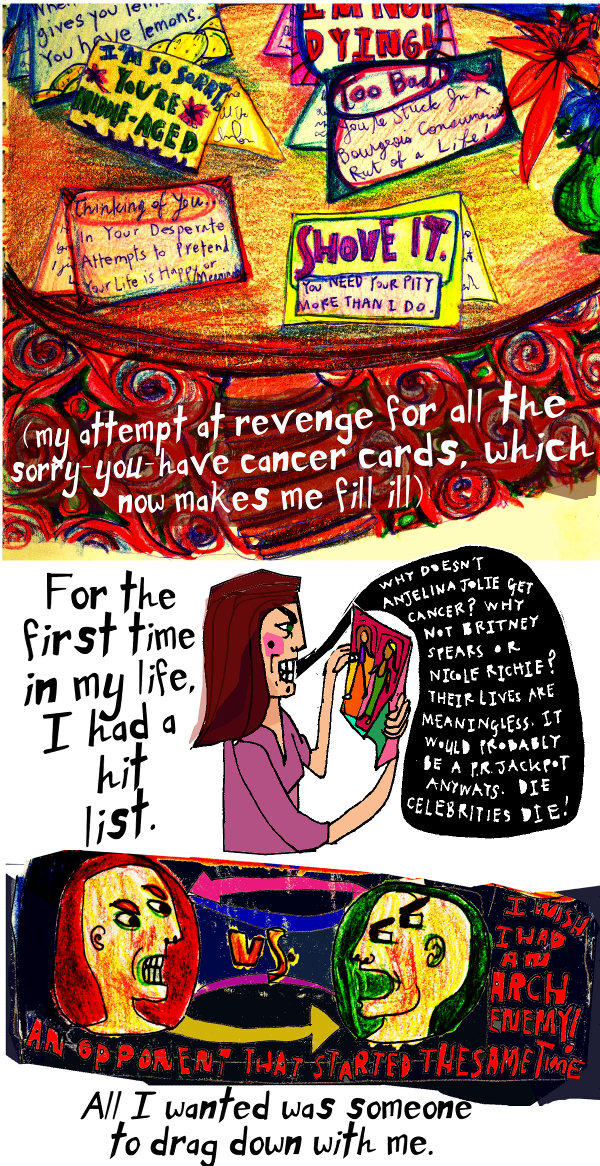 When
gives you lem
You have lemons.
I'M SO SORRY
YOU'RE
MIDDLE-AGED
I'M NOT
DYING!
Too Bad
You're Stuck In A
Bourgeois Consumerist
Rut of a Life!
Thinking of You...
In Your Desperate
Attempts to Pretend
Your Life is Happy or
Meaningful
SHOVE IT.
YOU NEED YOUR PITY
MORE THAN I DO.
(my attempt at revenge for all the
sorry-you-have cancer cards, which
now makes me fill ill)
For the
first time
in my life,
I had a
hit
list.
WHY DOESN'T
ANJELINA JOLIE GET
CANCER? WHY
NOT BRITNEY
SPEARS OR
NICOLE RICHIE?
THEIR LIVES ARE
MEANINGLESS. IT
WOULD PROBABLY
BE A P.R. JACKPOT
ANYWAYS. DIE
CELEBRITIES DIE!
VS.
I WISH
I HAD
AN
ARCH
ENEMY!
AN OPPONENT THAT STARTED THE SAME TIME
All I wanted was someone
to drag down with me.